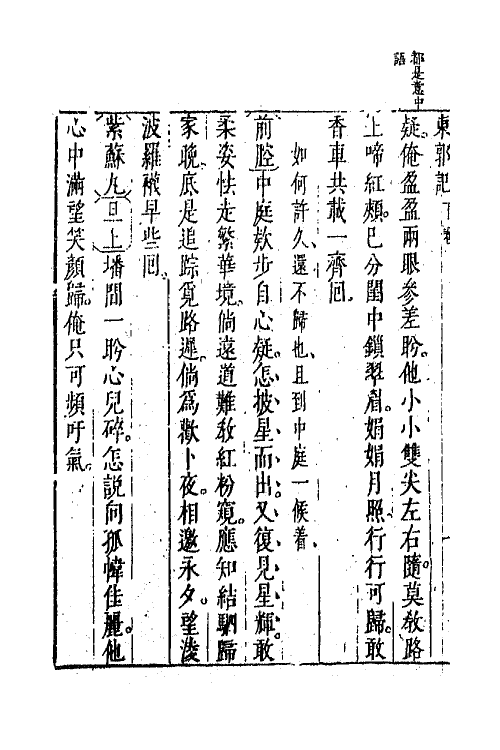 都是意中
語
東郭記下卷
疑。俺盈盈兩眼參差盼。他小小雙尖左右隨。莫教路
上啼紅頰。已分閨中鎖翠眉。娟娟月照。行行可歸。敢
香車共載一齊囘。
如何許久、還不歸也、且到中庭一候着、
前腔中庭欵步自心疑。怎披星而出、又復見星輝。敢
柔姿怯走繁華境。倘遠道難教紅粉窺。應知結駟歸
家晚。底是追踪覓路遲。倘爲歡卜夜。相邀永夕。望淩
波羅襪早些囘。
紫蘇丸旦上墦間一盻心兒碎。怎説向孤幃佳麗。他
心中滿望笑顏歸。俺只可頻吁氣。